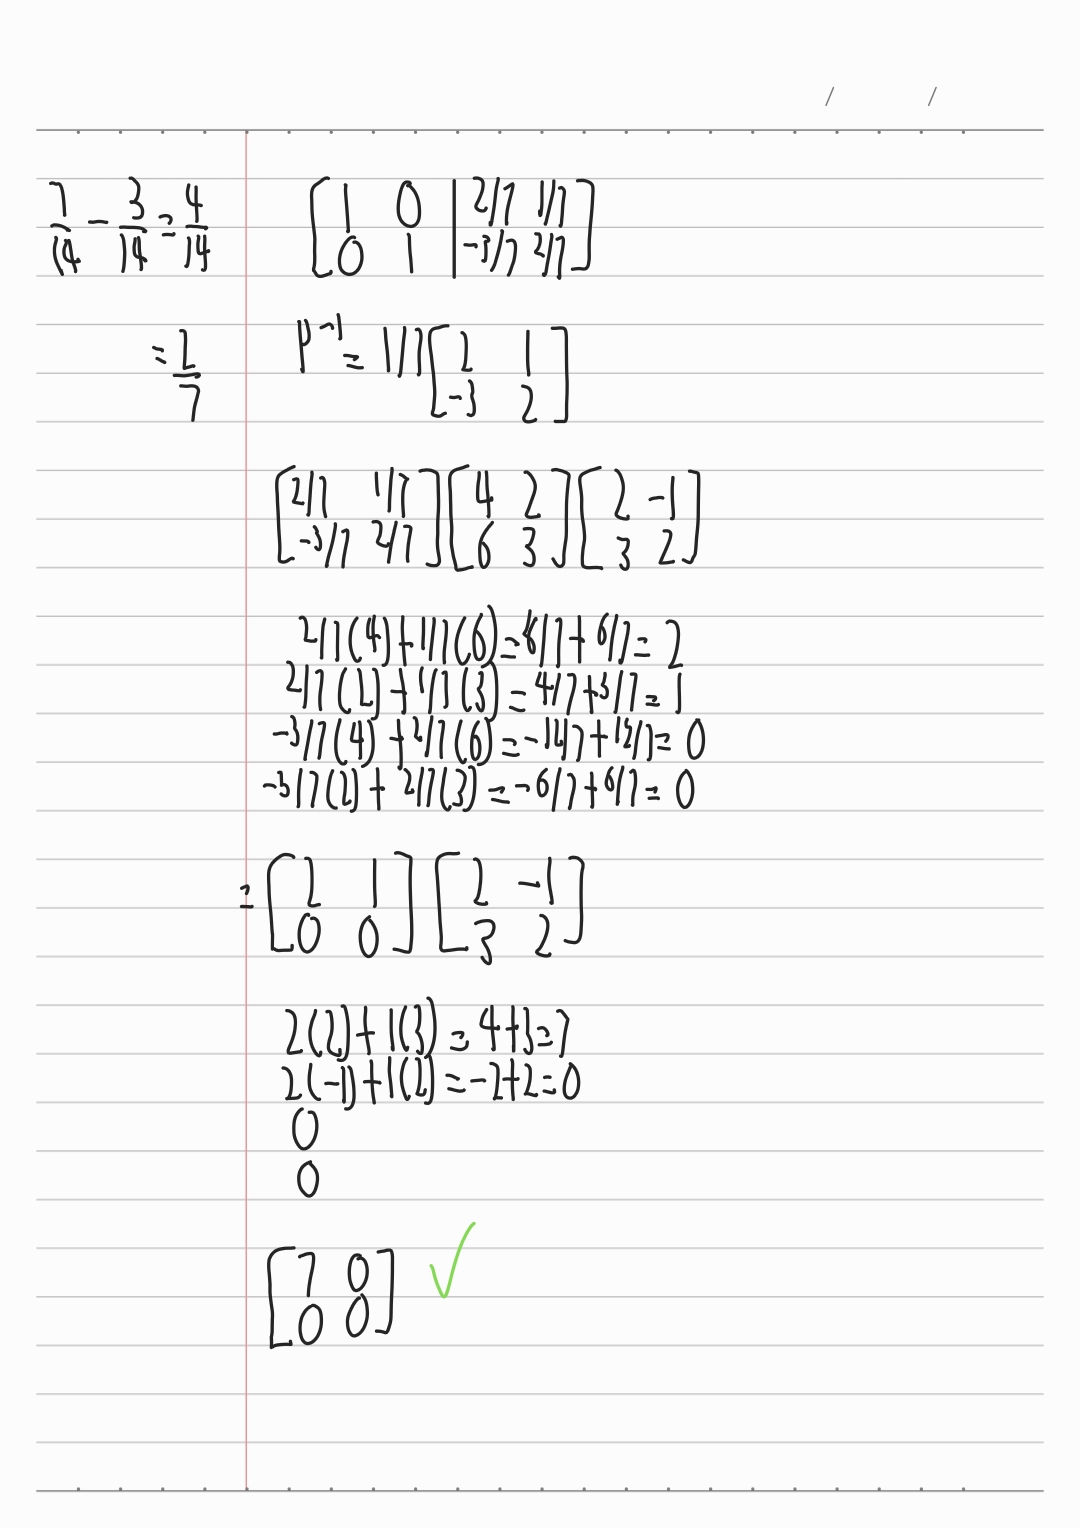 / /
7/14 - 3/14 = 4/14
= 2/7
[ 1 0 | 2/7 1/7 ]
[ 0 1 | -3/7 2/7 ]
P⁻¹ = 1/7 [ 2 1 ]
[ -3 2 ]
[ 2/7 1/7 ] [ 4 2 ] [ 2 -1 ]
[ -3/7 2/7 ] [ 6 3 ] [ 3 2 ]
2/7(4) + 1/7(6) = 8/7 + 6/7 = 2
2/7(2) + 1/7(3) = 4/7 + 3/7 = 1
-3/7(4) + 2/7(6) = -12/7 + 12/7 = 0
-3/7(2) + 2/7(3) = -6/7 + 6/7 = 0
= [ 2 1 ] [ 2 -1 ]
[ 0 0 ] [ 3 2 ]
2(2) + 1(3) = 4+3=7
2(-1) + 1(2) = -2+2=0
0
0
[ 7 0 ] ✓
[ 0 0 ]